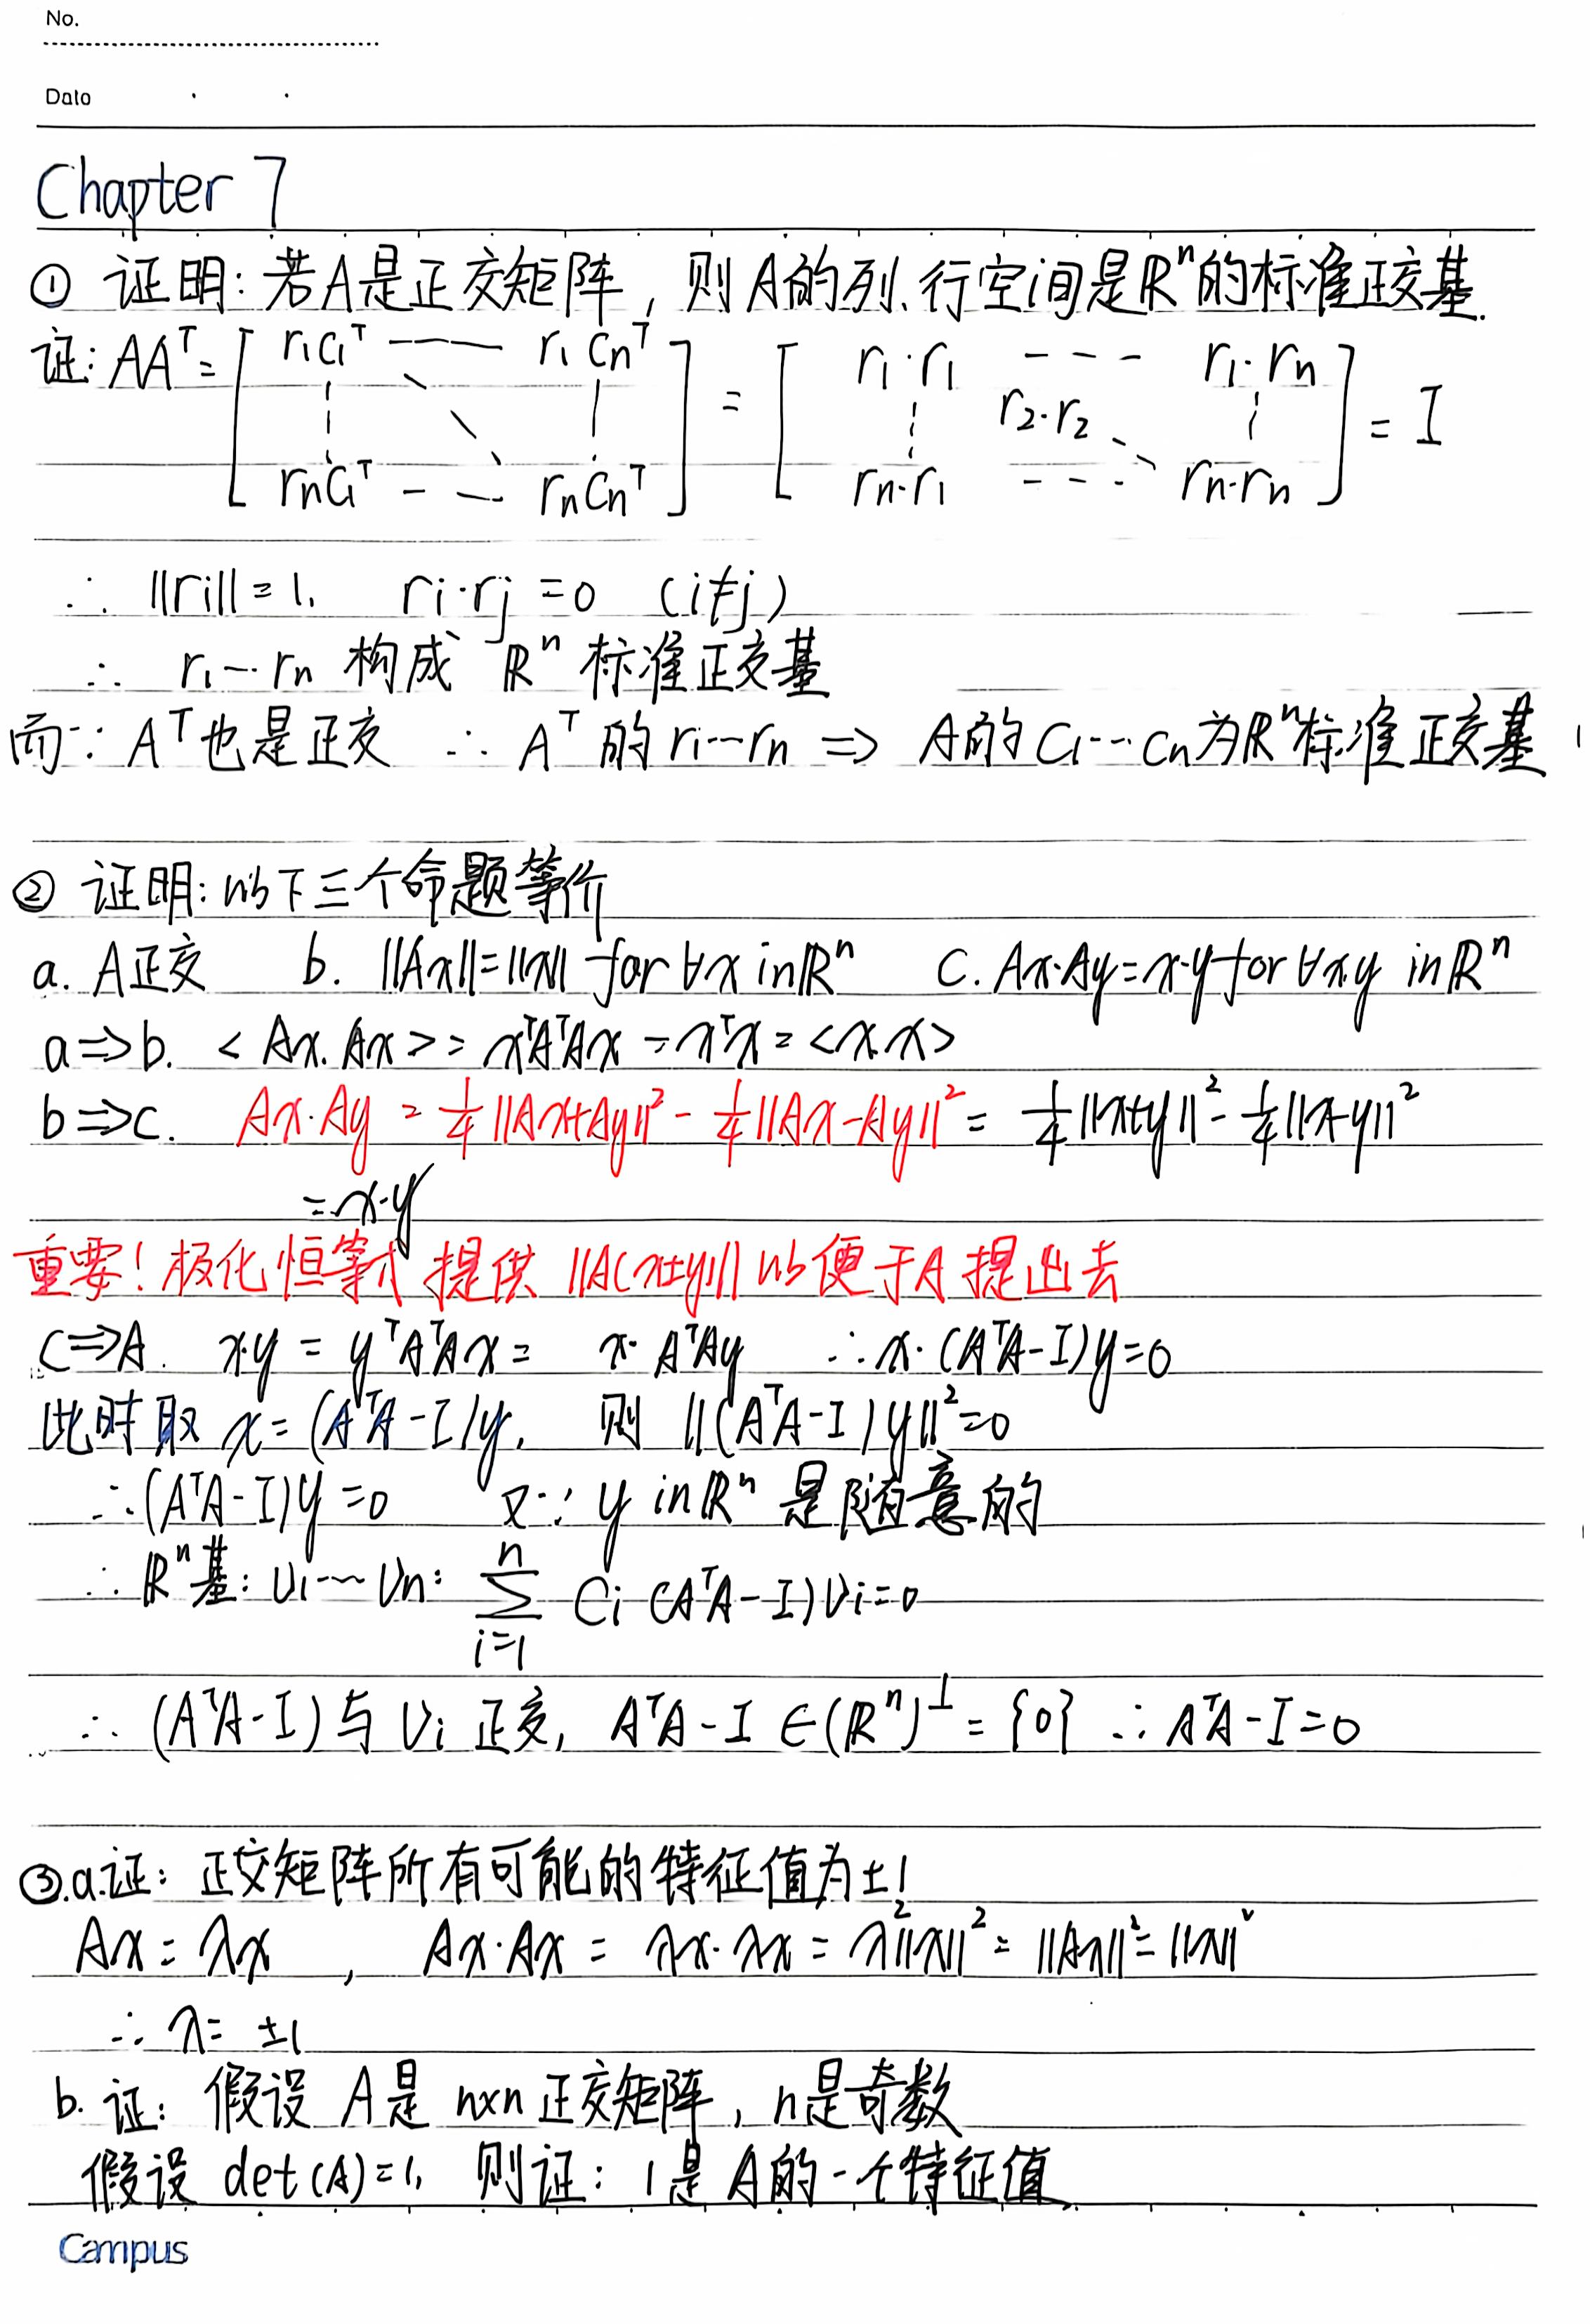 No.
Date
Chapter 7
① 证明: 若A是正交矩阵, 则A的列、行空间是ℝⁿ的标准正交基.
证: AAᵀ = [ r₁c₁ᵀ ---- r₁cₙᵀ ⋮ ⋱ ⋮ rₙc₁ᵀ --- rₙcₙᵀ ] = [ r₁·r₁ --- r₁·rₙ ⋮ r₂·r₂ ⋱ ⋮ rₙ·r₁ --- rₙ·rₙ ] = I
∴ ||rᵢ|| = 1, rᵢ·rⱼ = 0 (i≠j)
∴ r₁…rₙ 构成 ℝⁿ 标准正交基
而∵ Aᵀ也是正交 ∴ Aᵀ的r₁…rₙ ⇒ A的C₁…Cₙ为ℝⁿ标准正交基
② 证明: 以下三个命题等价
a. A正交 b. ||Ax||=||x|| for ∀x in ℝⁿ C. Ax·Ay=x·y for ∀x.y in ℝⁿ
a⇒b. <Ax.Ax> = xᵀAᵀAx = xᵀx = <x.x>
b⇒c. Ax·Ay = ¼||Ax+Ay||² - ¼||Ax-Ay||² = ¼||x+y||² - ¼||x-y||²
= x·y
重要! 极化恒等式 提供 ||A(x±y)|| 以便于A提出去
C⇒A. x·y = yᵀAᵀAx = x·AᵀAy ∴ x·(AᵀA-I)y=0
此时取 x=(AᵀA-I)y, 则 ||(AᵀA-I)y||²=0
∴ (AᵀA-I)y=0 又∵ y in ℝⁿ 是随意的
∴ ℝⁿ基: v₁…vₙ: ∑ᵢ₌₁ⁿ Cᵢ (AᵀA-I)vᵢ=0
∴ (AᵀA-I)与vᵢ正交, AᵀA-I ∈ (ℝⁿ)^⊥ = {0} ∴ AᵀA-I=0
③.a.证: 正交矩阵所有可能的特征值为±1
Ax = λx , Ax·Ax = λx·λx = λ²||x||² = ||Ax||² = ||x||²
∴ λ= ±1
b. 证: 假设 A是 n×n 正交矩阵, n是奇数
假设 det(A)=1, 则证: 1是A的一个特征值
Campus